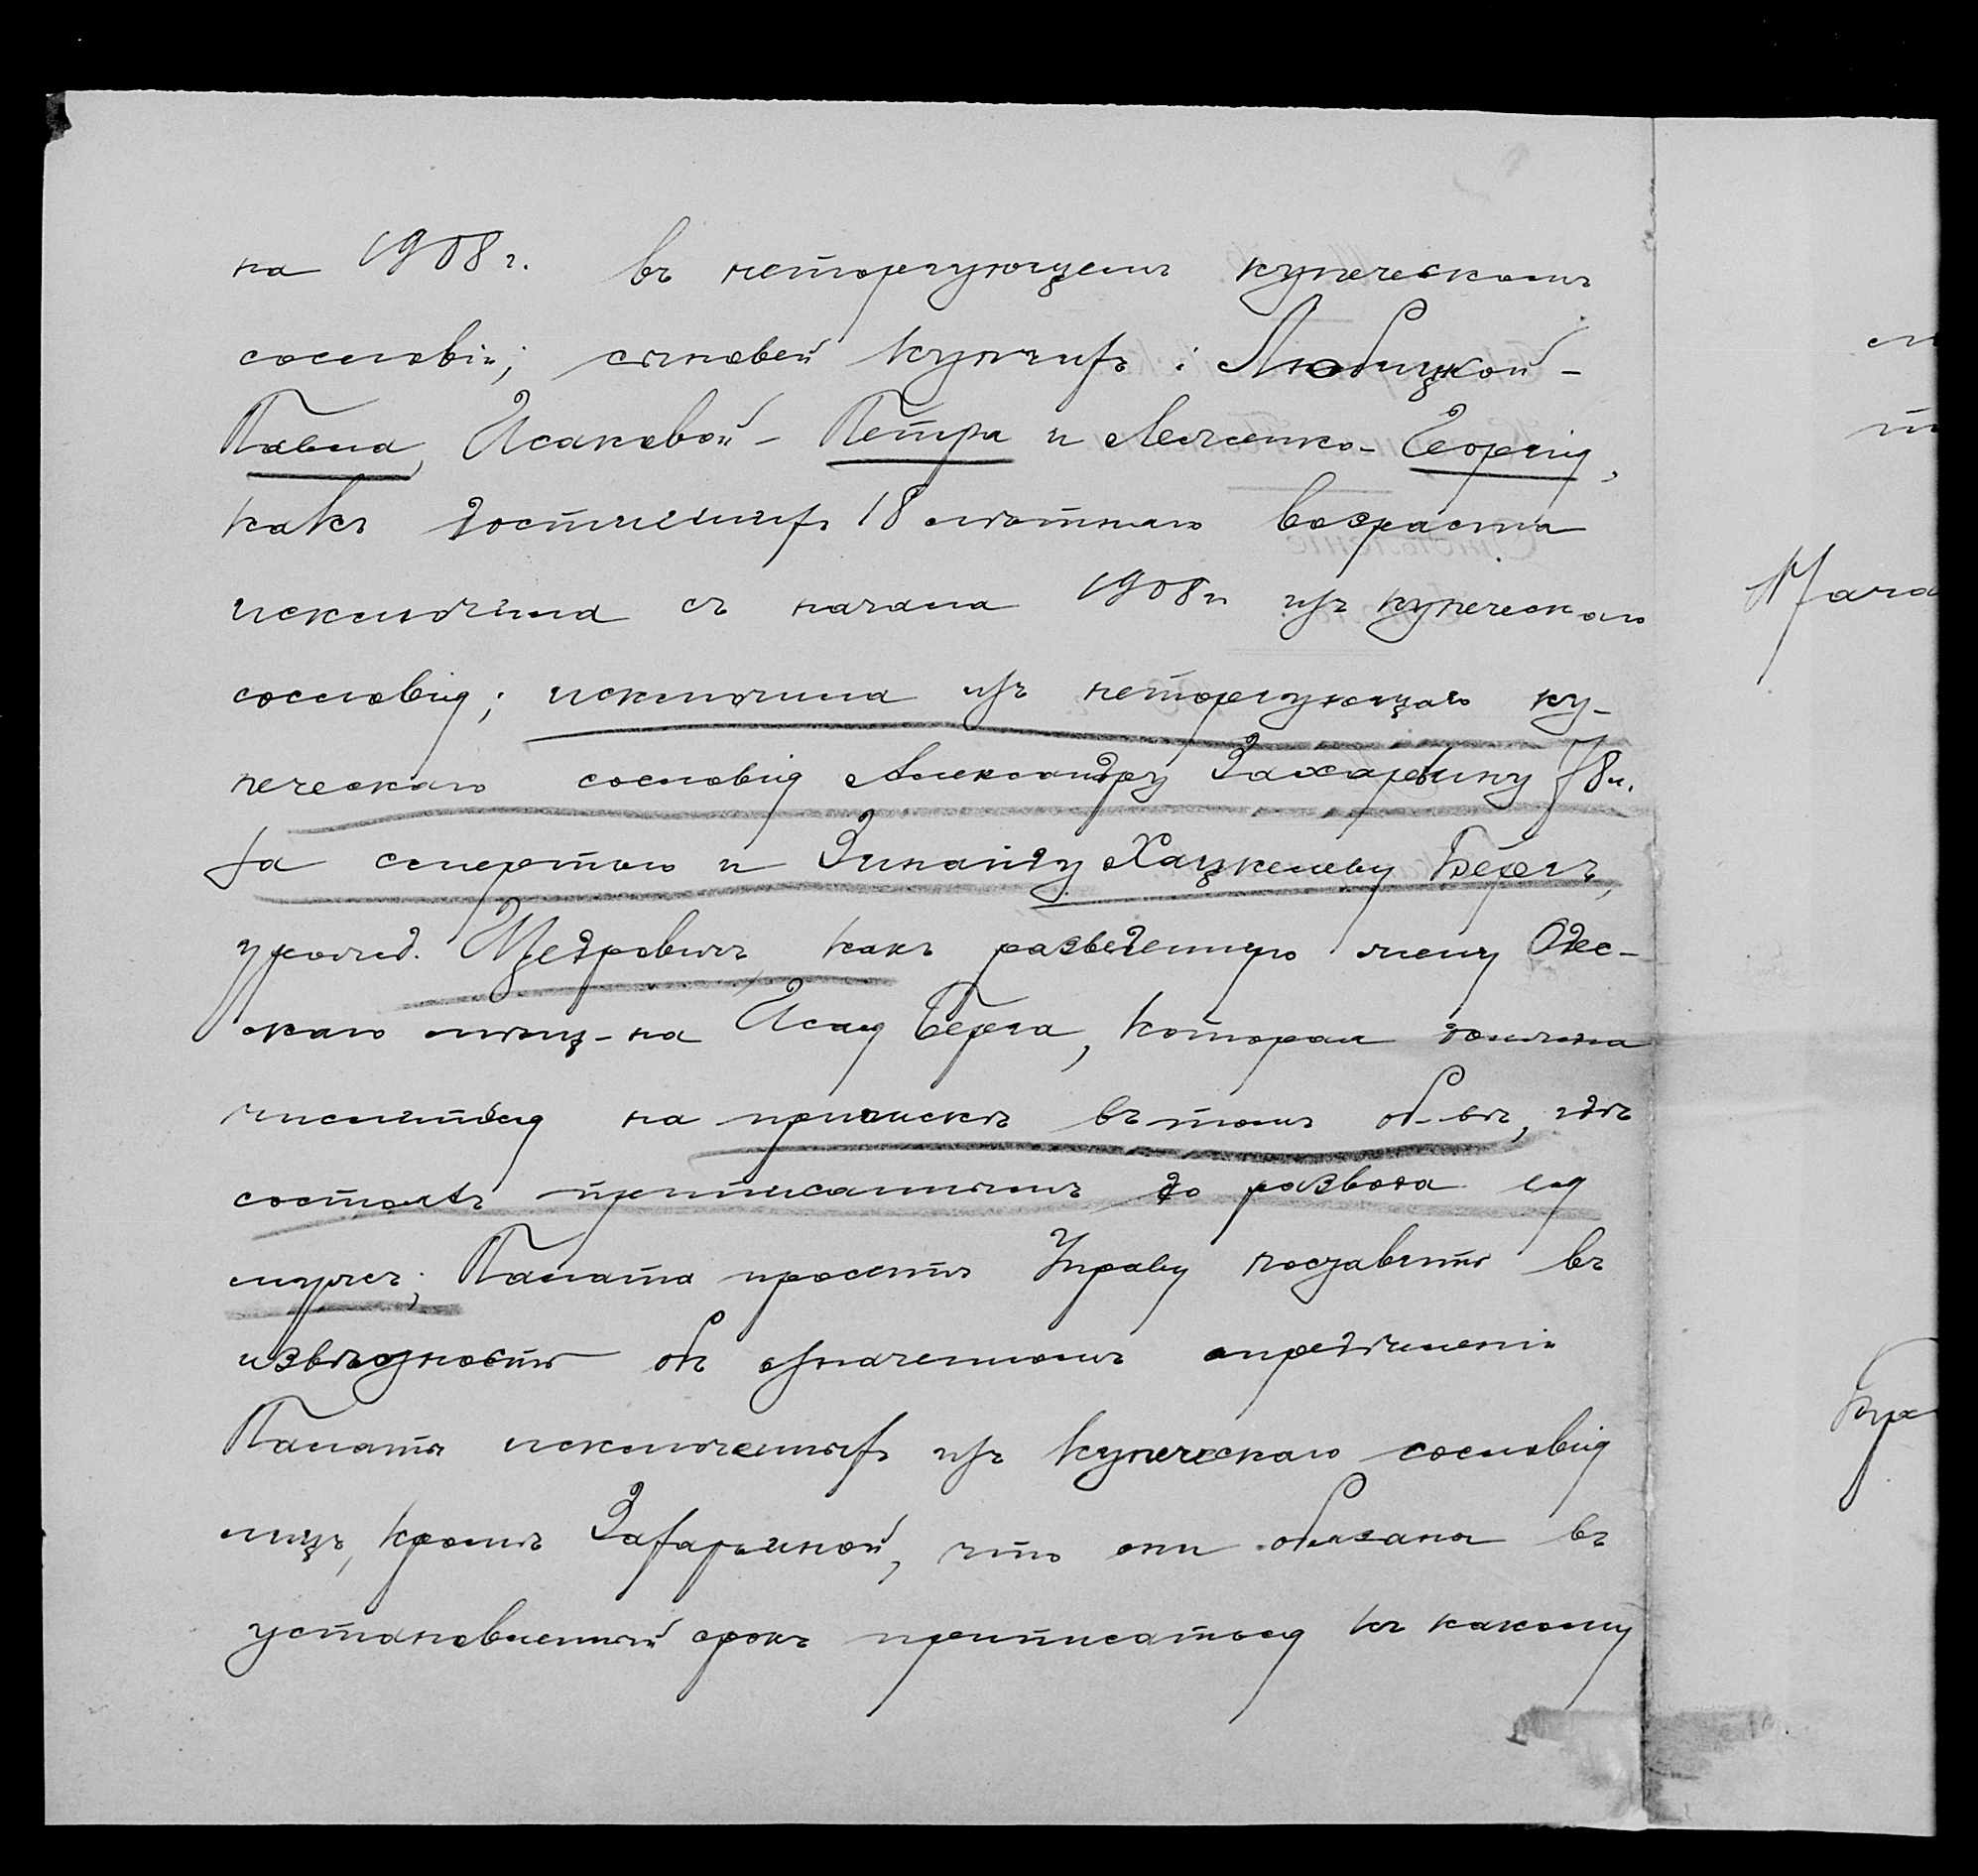 на 1908 г. въ неторгующемъ купеческомъ
сословіи; сыновей купчихъ: Любицкой -
Павла, Исаковой - Петра и Левченко - Георгія,
какъ достигшихъ 18 лѣтняго возраста
исключила съ начала 1908 г. изъ купеческаго
сословія; исключила изъ неторгующаго ку-
печескаго сословія Александру Захарьину 78 л.
за смертью и Зинаиду Хацкелеву Бергъ,
урожд. Щедровичъ, какъ разведенную жену Одес-
скаго мѣщ-на Исая Берга, которая должна
числиться на припискѣ въ томъ об-вѣ, гдѣ
состоялъ приписаннымъ до развода ея
мужъ; Палата проситъ Управу поставить въ
извѣстность объ означенномъ опредѣленіи
Палаты исключенныхъ изъ купеческаго сословія
лицъ, кромѣ Захарьиной, что они обязаны въ
установленный срокъ приписаться къ какому